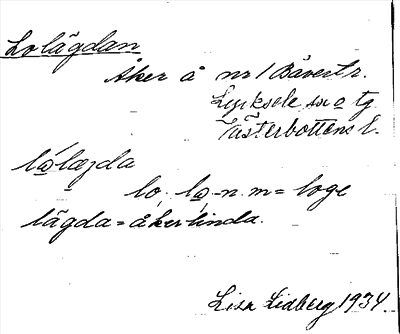 Lolägdan
Åker å nr 1 Bäverstr.
Lycksele sn o tg
Västerbottens l.
lo, n. m = loge
lägda = åkerlinda.
Lisa Lidberg 1934.